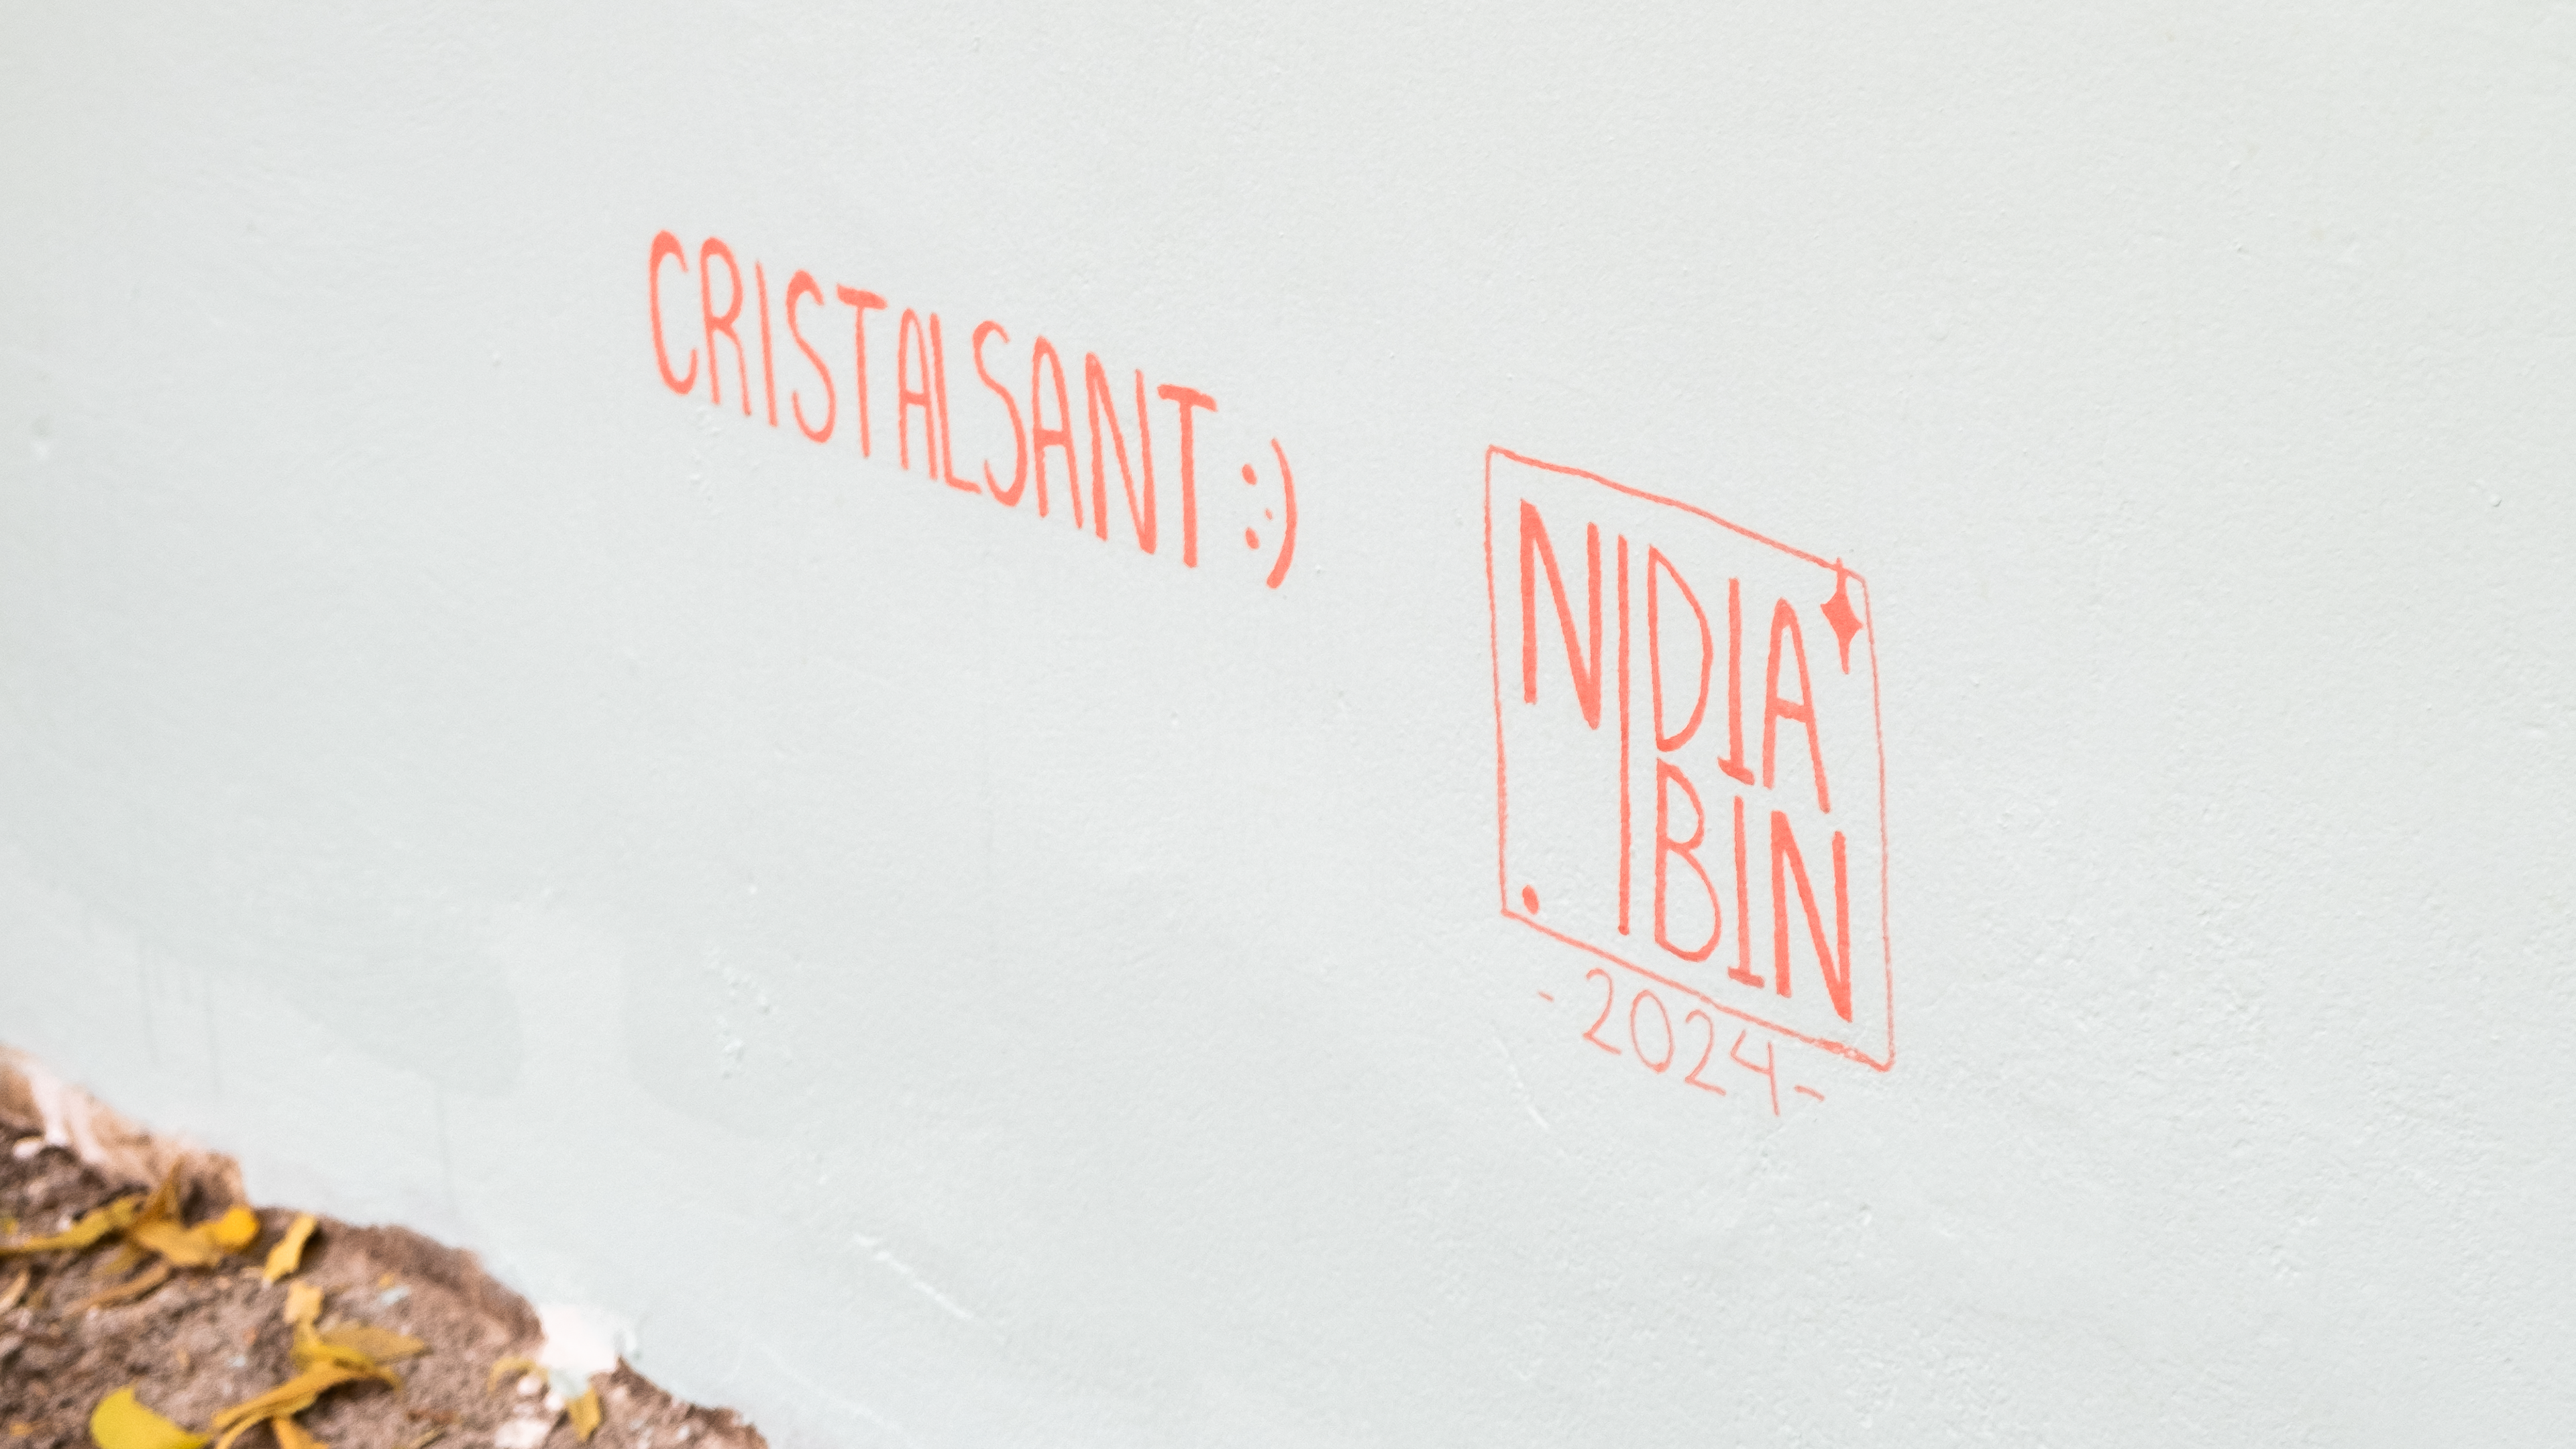 CRISTALSANT :)
NIDIA
BIN
-2024-